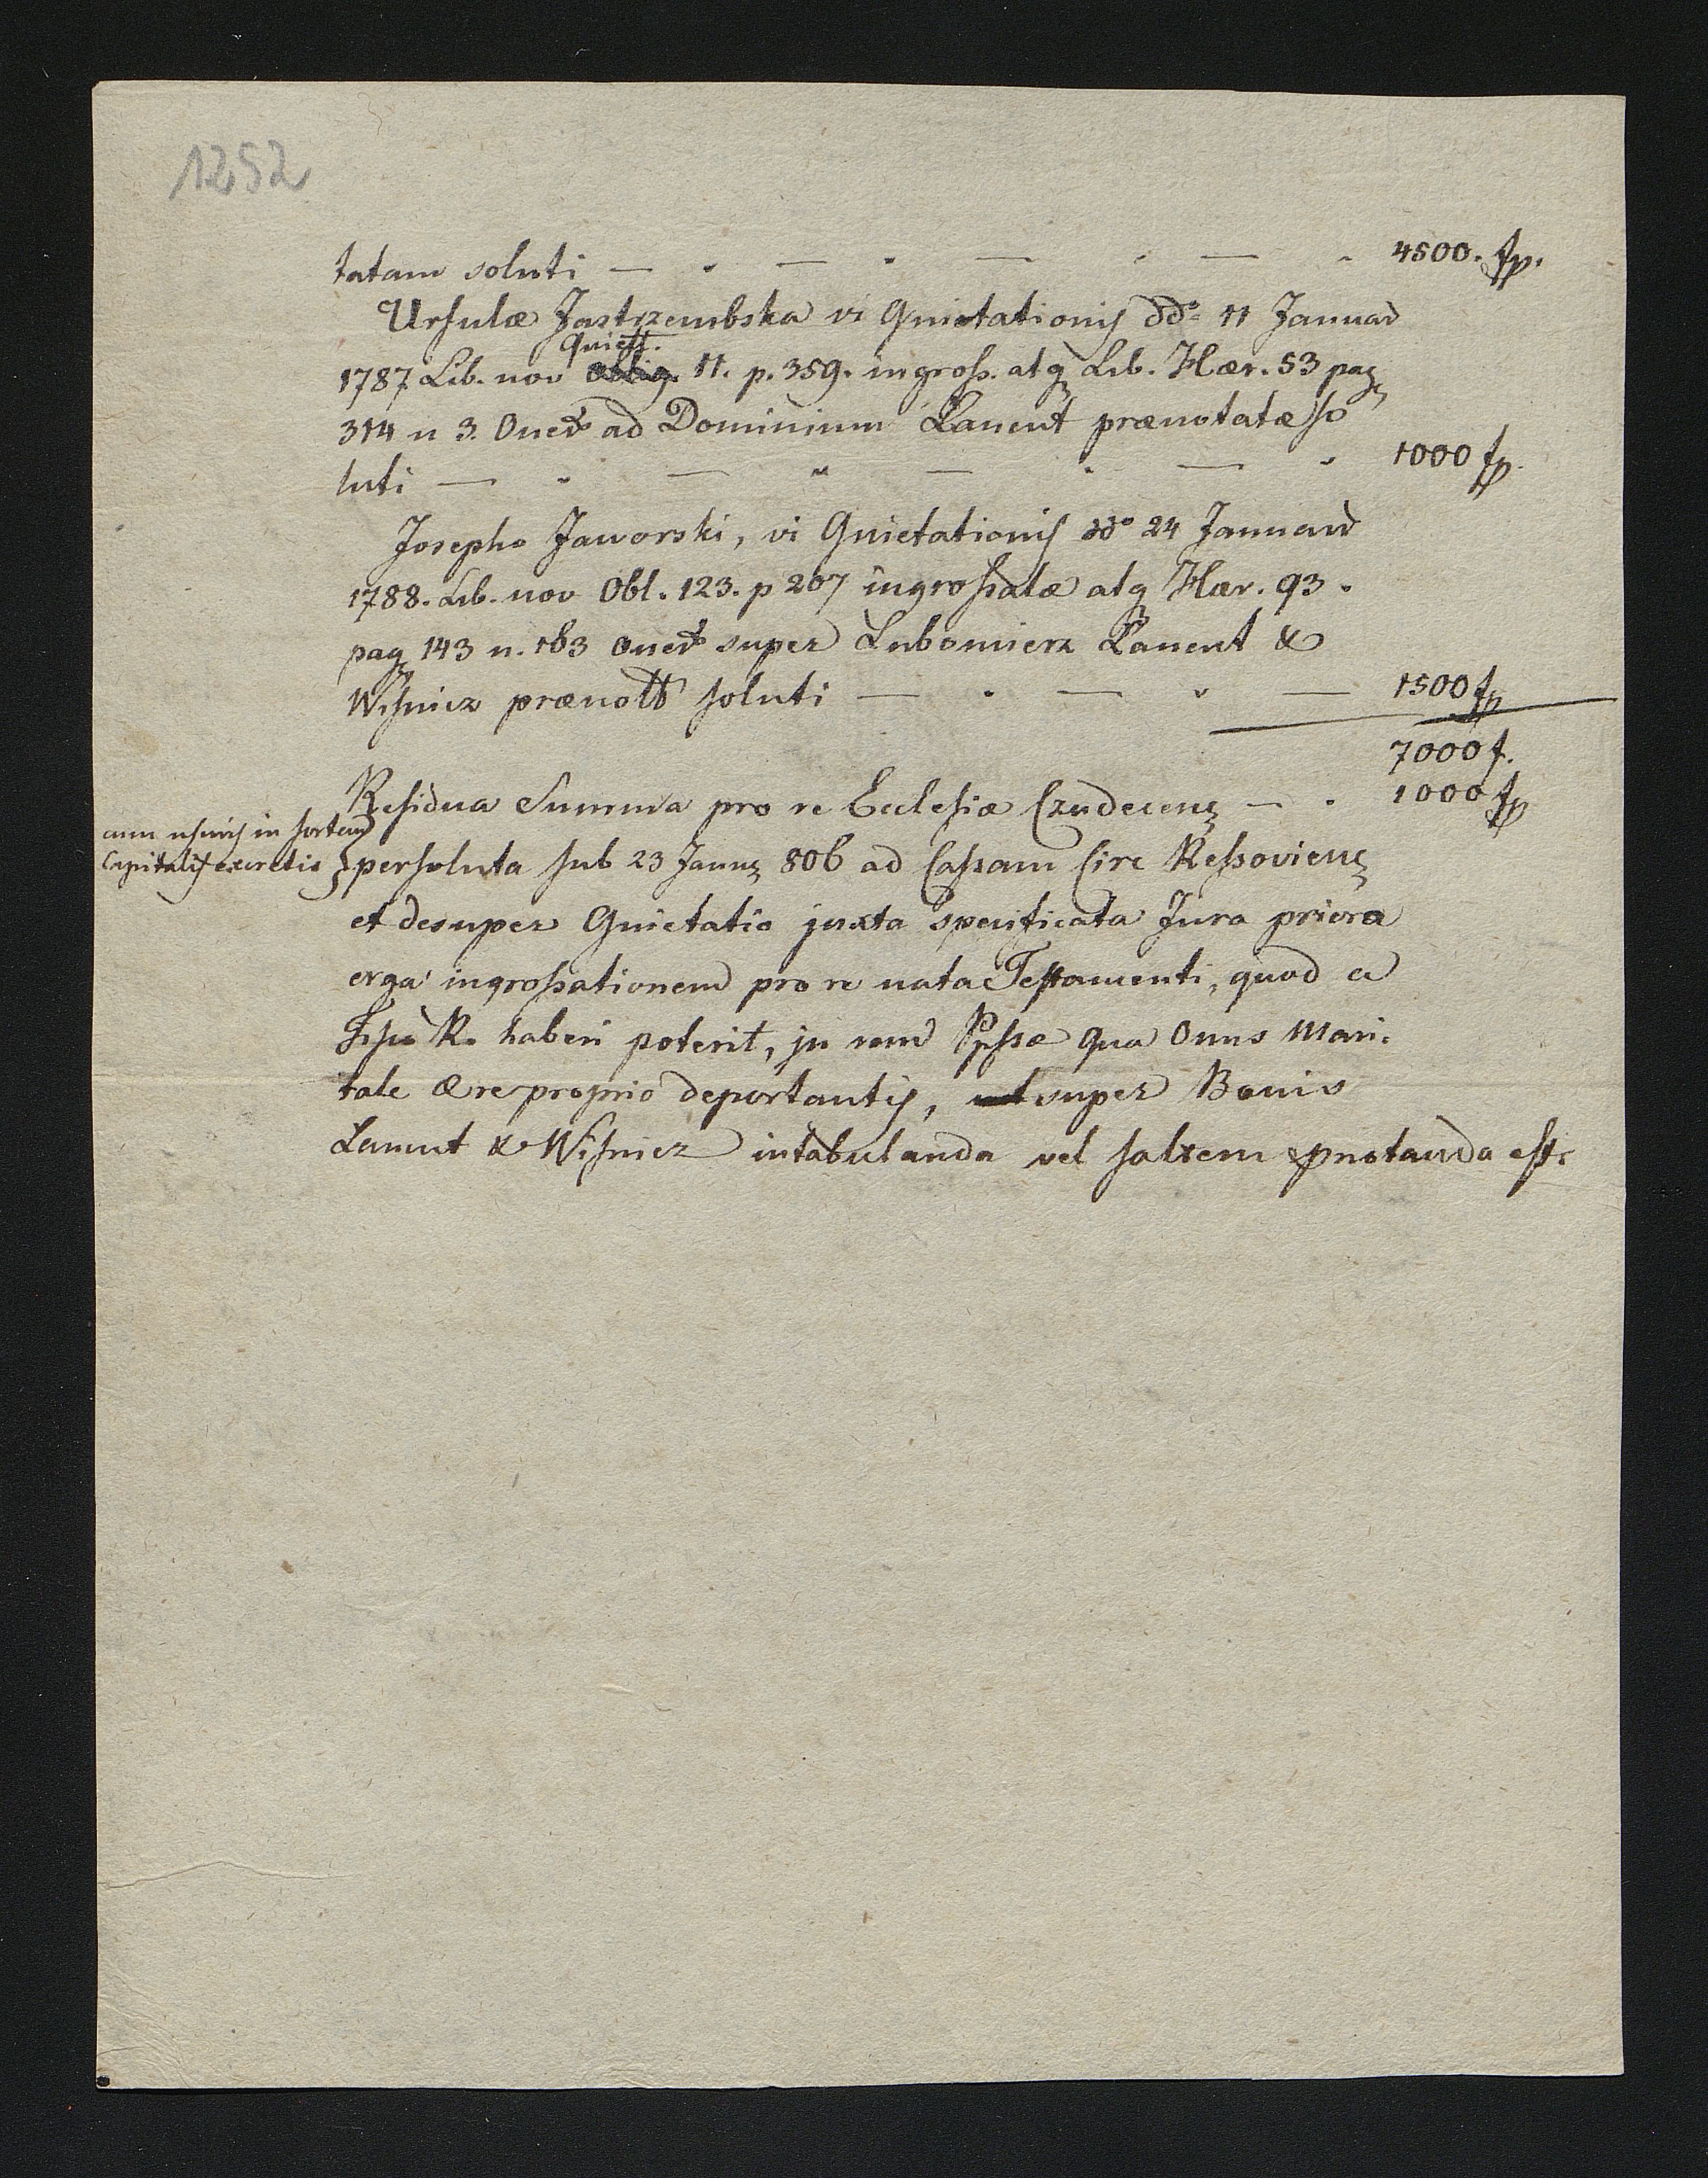 1252
tatam soluti — - — - — - — - 4500. fp.
Ursulæ Jastrzembska vi Quietationis ddo 11 Januar
Quiett.
1787 Lib. nov Oblig. 11. p. 359. ingross. atq Lib. Hær. 53 pag
314 n 3. Oner ad Dominium Lancut prænotatæ so
luti — - — " — - — - 1000 fp.
Josepho Jaworski, vi Quietationis ddo 24 Januar
1788. Lib. nov Obl. 123. p 207 ingrossatæ atq Hær. 93.
pag 143 n. 183 oner super Lubomierz Lancut &
Wisnicz prænott soluti — - — - — 1500 fp
7000 f.
Residua Summa pro re Ecclesiæ Czudecens — - 1000 fp
cum usuris in sortem
Capitalis excretis } persoluta sub 23 Janu 806 ad Cassam Circ Ressoviens
et desuper Quietatio juxta specificata Jura priora
erga ingrossationem pro re nata Testamenti, quod a
R. haberi poterit, in rem Ppssæ qua Onus Mari-
tale ære proprio deportantis, super Bonis
Lancut & Wisnicz intabulanda vel saltem pnotanda est.